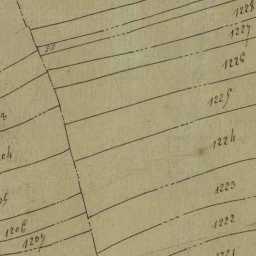 1228
1227
1226
1225
1224
1223
1222
1221
1206
1207